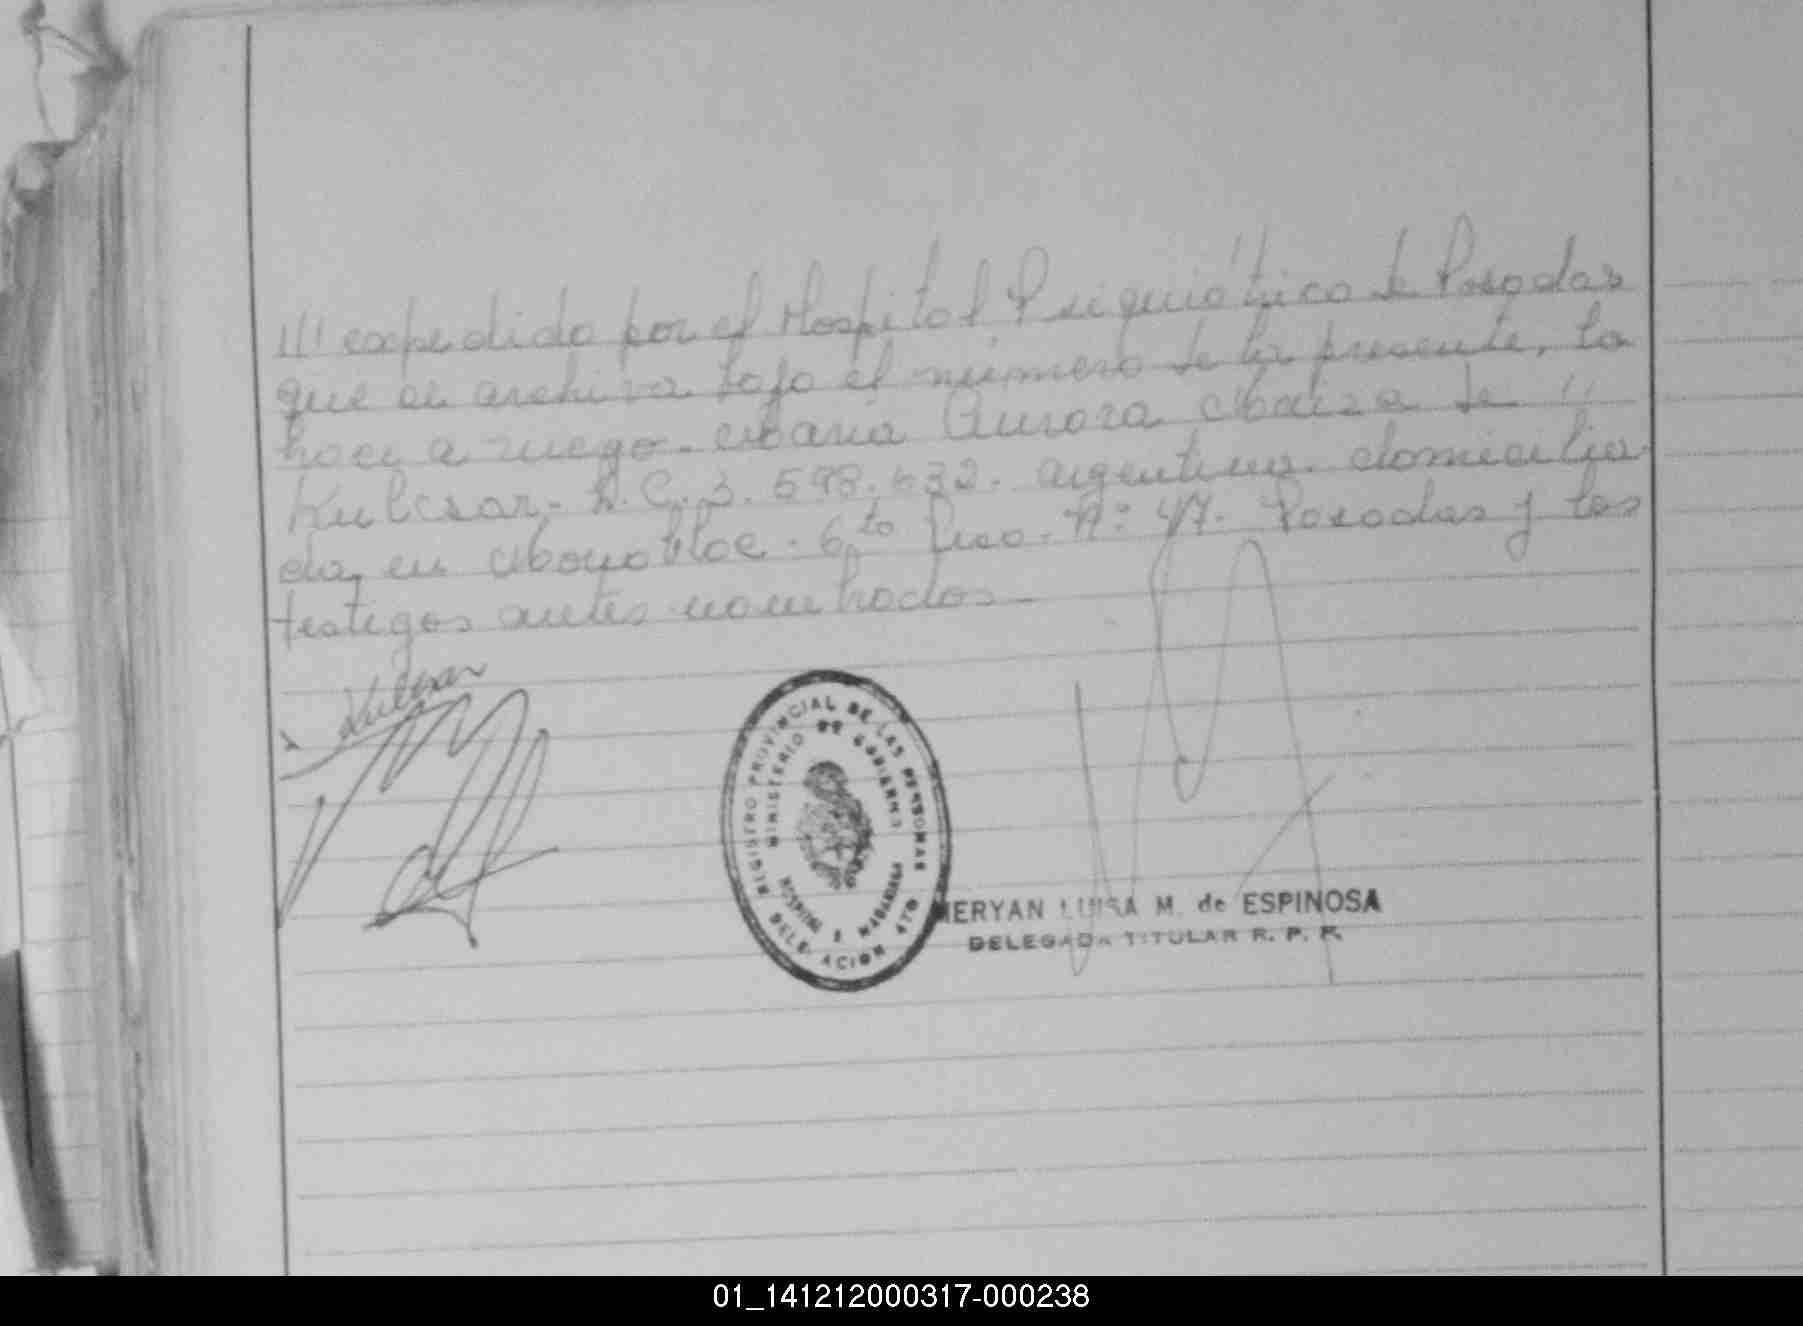 /// expedido por el Hospital Psiquiátrico de Posadas
que se archiva bajo el número de la presente, lo
hace a ruego. María Aurora Maiza de "
Kulcsar. L.C. 3.598.632. argentina. domicilia
da en Monobloc. 6to Piso. Nº: 47. Posadas y los
testigos antes nombrados.-
Kulcsar
REGISTRO PROVINCIAL DE LAS PERSONAS
MINISTERIO DE GOBIERNO
DELEGACION 4TO
MERYAN LUISA M. de ESPINOSA
DELEGADA TITULAR R. P. P.
01_141212000317-000238